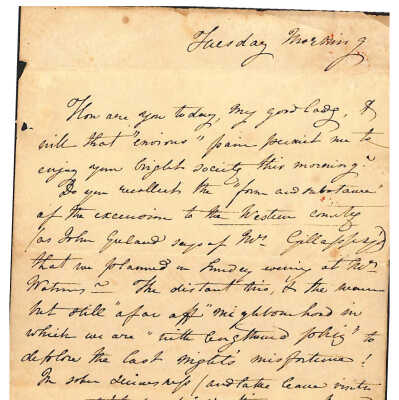 Tuesday Morning
How are you today, my good lady, &
will that "envious" pain permit me to
enjoy your bright society this morning?
Do you recollect the "form and substance"
of the excursion to the Western county
(as John says of Mr.
that we planned on Sunday evening at Mrs
The distant this, & the nearer
but still "afar off" neighbourhood in
which we are "with policy" to
deplore the last night's misfortune!
In (and take leave